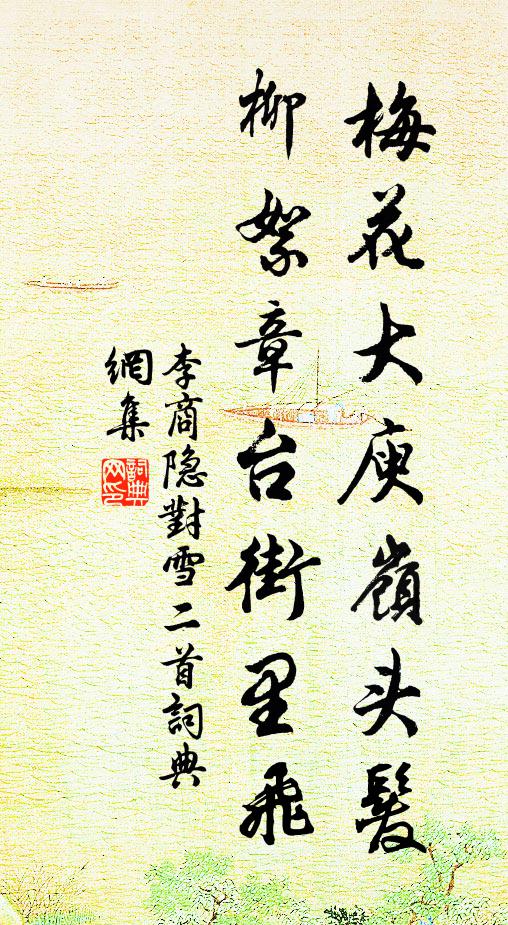 梅花大庾嶺头髮
柳絮章台街里飛
李商隐對雪二首詞典
網集
詞典
网印